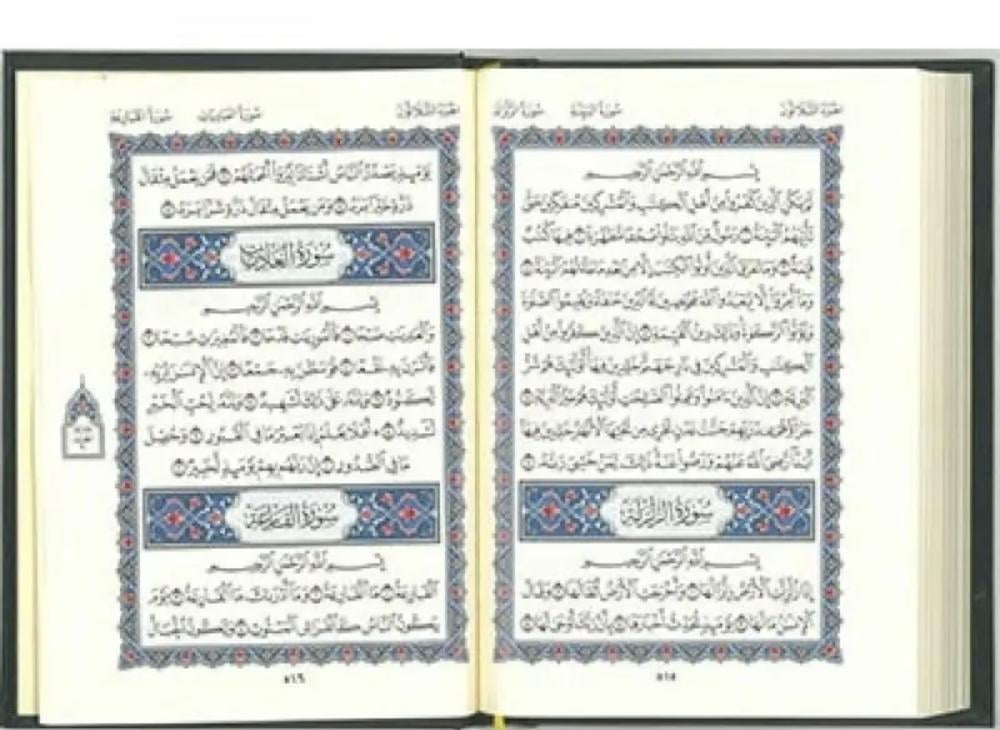 الجزء الثلاثون سورة البينة سورة الزلزلة
بسم الله الرحمن الرحيم
لم يكن الذين كفروا من أهل الكتب والمشركين منفكين حتى
تأتيهم البينة ١ رسول من الله يتلوا صحفا مطهرة ٢ فيها كتب
قيمة ٣ وما تفرق الذين أوتوا الكتب إلا من بعد ما جاءتهم البينة ٤
وما أمروا إلا ليعبدوا الله مخلصين له الدين حنفاء ويقيموا الصلوة
ويؤتوا الزكوة وذلك دين القيمة ٥ إن الذين كفروا من أهل
الكتب والمشركين في نار جهنم خلدين فيها أولئك هم شر
البرية ٦ إن الذين ءامنوا وعملوا الصلحت أولئك هم خير البرية ٧
جزاؤهم عند ربهم جنت عدن تجري من تحتها الأنهر خلدين فيها
أبدا رضي الله عنهم ورضوا عنه ذلك لمن خشي ربه ٨
سورة الزلزلة
بسم الله الرحمن الرحيم
إذا زلزلت الأرض زلزالها ١ وأخرجت الأرض أثقالها ٢ وقال
الإنسن ما لها ٣ يومئذ تحدث أخبارها ٤ بأن ربك أوحى لها ٥
٥١٥
الجزء الثلاثون سورة العاديات سورة القارعة
يومئذ يصدر الناس أشتاتا ليروا أعملهم ٦ فمن يعمل مثقال
ذرة خيرا يره ٧ ومن يعمل مثقال ذرة شرا يره ٨
سورة العاديات
بسم الله الرحمن الرحيم
والعديت ضبحا ١ فالموريت قدحا ٢ فالمغيرت صبحا ٣
فأثرن به نقعا ٤ فوسطن به جمعا ٥ إن الإنسن لربه
لكنود ٦ وإنه على ذلك لشهيد ٧ وإنه لحب الخير
لشديد ٨ أفلا يعلم إذا بعثر ما في القبور ٩ وحصل
ما في الصدور ١٠ إن ربهم بهم يومئذ لخبير ١١
سورة القارعة
بسم الله الرحمن الرحيم
القارعة ١ ما القارعة ٢ وما أدرىك ما القارعة ٣ يوم
يكون الناس كالفراش المبثوث ٤ وتكون الجبال
٥١٦